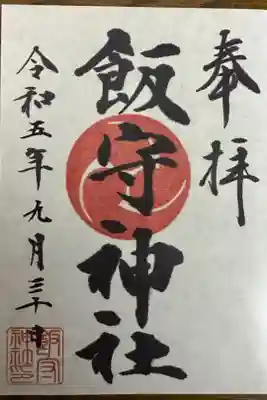 奉拝
飯守神社
令和五年九月三十日
飯守
神社印